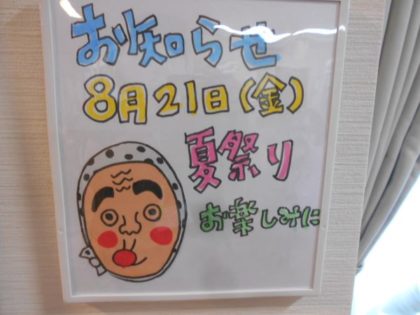 お知らせ
8月21日(金)
夏祭り
お楽しみに